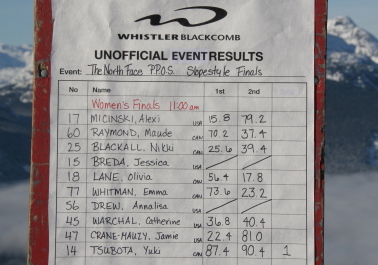 WHISTLER BLACKCOMB
UNOFFICIAL EVENT RESULTS
Event: The North Face P.P.O.S. Slopestyle Finals
No Name 1st 2nd
Women's Finals 11:00 am
17 MICINSKI, Alexi USA 15.8 79.2
60 RAYMOND, Maude CAN 70.2 37.4
25 BLACKALL, Nikki CAN 25.6 39.4
15 BREDA, Jessica USA
18 LANE, Olivia CAN 56.4 17.8
77 WHITMAN, Emma CAN 73.6 23.2
56 DREW, Annalisa USA
45 WARCHAL, Catherine USA 36.8 40.4
47 CRANE-MAUZY, Jamie USA 22.4 81.0
14 TSUBOTA, Yuki CAN 87.4 90.4 1